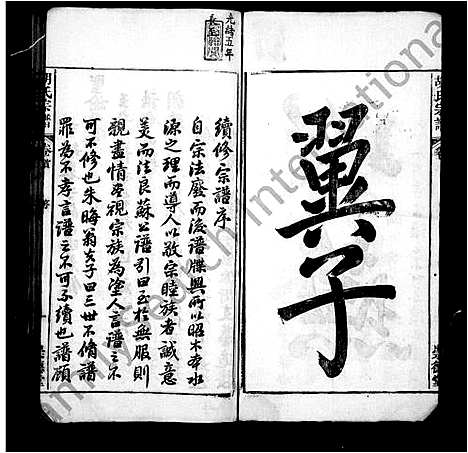 翼子
光緒五年
續修宗譜序
自宗法廢而後譜牒興所以昭木本水
源之理而導人以敬宗睦族者誠意
美而法良蘇公譜引曰至於無服則
親盡情盡視宗族為塗人言譜之不
可不修也朱晦翁夫子曰三世不脩譜
罪為不孝言譜之不可不續也譜顧
胡氏宗譜
卷首
序
胡氏宗譜
FamilySearch International